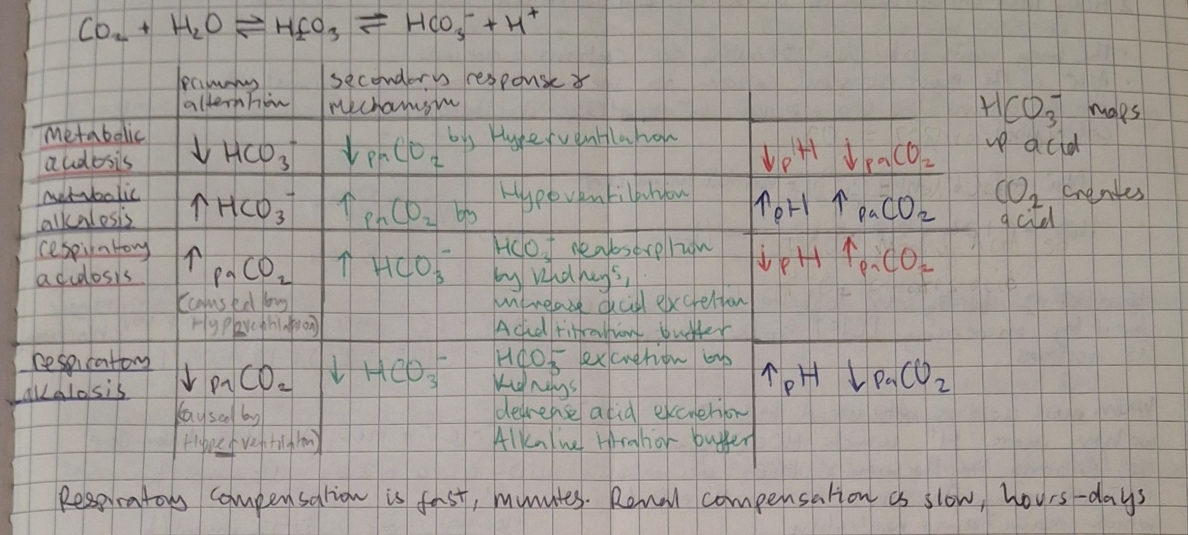 CO₂ + H₂O ⇌ H₂CO₃ ⇌ HCO₃⁻ + H⁺
primary alterntion
secondary response & Mechanism
Metabolic acidosis
↓ HCO₃⁻
↓ paCO₂ by Hyperventilation
↓ pH ↓ paCO₂
HCO₃⁻ mops up acid
Metabolic alkalosis
↑ HCO₃⁻
↑ paCO₂ by Hypoventilation
↑ pH ↑ paCO₂
CO₂ creates acid
respiratory acidosis
↑ paCO₂
(caused by Hypoventilation)
↑ HCO₃⁻
HCO₃⁻ reabsorption
by kidneys,
increase acid excretion
Acid titration buffer
↓ pH ↑ paCO₂
respiratory alkalosis
↓ paCO₂
(caused by Hyperventilation)
↓ HCO₃⁻
HCO₃⁻ excretion by
kidneys
decrease acid excretion
Alkaline titration buffer
↑ pH ↓ paCO₂
Respiratory compensation is fast, minutes. Renal compensation is slow, hours-days